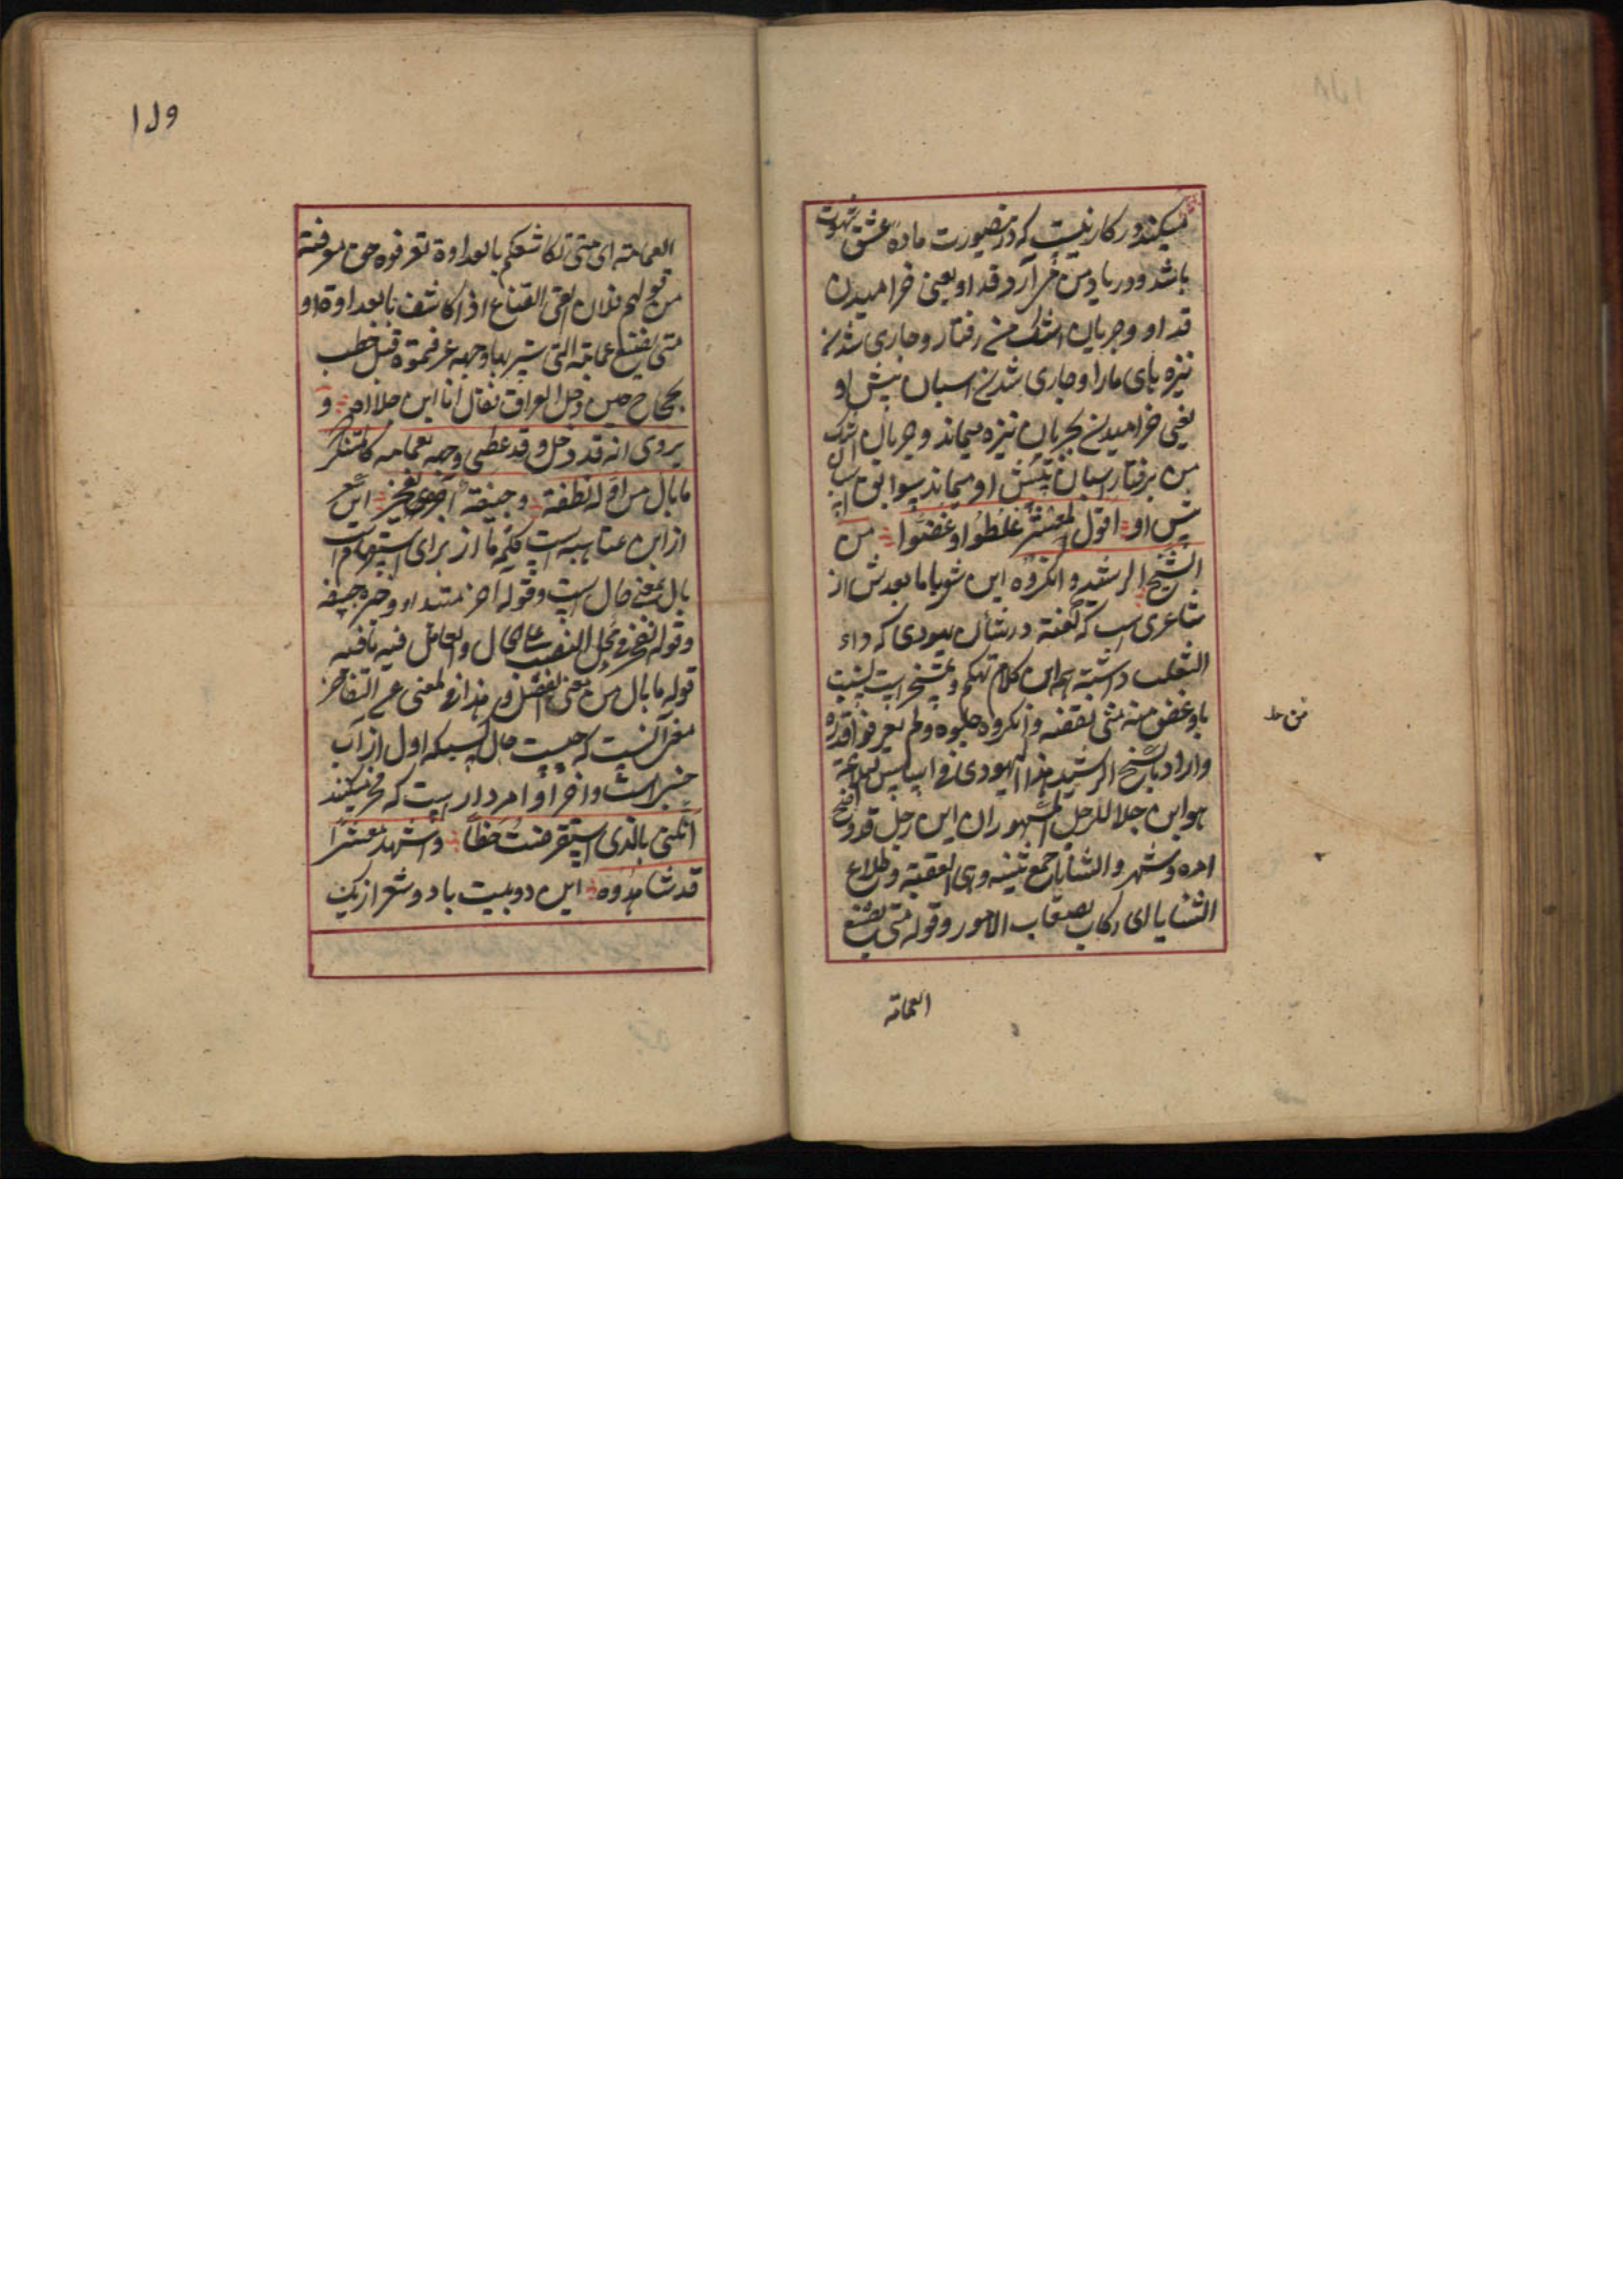 میکند در کار نیست که درینصورت ماده عشق شهوت
باشد و در یاد من می آرد قد او یعنی خرامیدن
قد او و جریان اشک من رفتار و جاری شدن
نیزه بای ما را و جاری شدن اسبان پیش او
یعنی خرامیدن بجریان نیزه میماند و جریان اشک
من برفتار اسبان پیش او میماند
پس او اقول لمعشر غلطوا و غضوا من
الشیخ الرشید و انکروه این شعر با ما بعدش از
شاعری است که گفته در شأن یهودی که داء
الثعلب داشته این کلام تهکم و تمسخر است
یا و غض منه منی نقصه و انکروه جلبوه ولم یعرفوا قدره
و اراد بالشیخ الرشید هذا الیهودی
هو ابن جلا للرجل المشهور ان ابن رجل قد وضح
امره و شهر و الثنایا جمع ثنیه و هی العقبة و طلاع
الثنایا ای رکاب لصعاب الامور و قوله متی یضع
العمامة
من جلد
۱۷۹
العمامة ای متی تکاشفکم بالعداوة تعرفوه حق معرفته
من قولهم فلان القی القناع اذا کاشف بالعداوة او
متی یضع عمامته التی ستر بها وجهه عرفتموه قبل خطب
حجاج حین دخل العراق فقال انا ابن جلا اه و
یروی انه قد دخل و قد غطی وجهه بعمامه کالمتنکر
ما بال من اوله نطفة و جیفة آخره یفخر این شعر
از ابن عتاهیه است کلمه ما از برای استفهام است
بال بمعنی حال است و قوله آخره مبتدا و خبره جیفه
و قوله یفخر فی محل النصب علی الحال و العامل فیه ما فیه
قوله ما بال من معنی الفعل و هذا فی المعنی عن التفاخر
معنی آنست که چیست حال کسیکه اول او از آب
است و آخر او مردار است که فخر میکند
اتکنی بالذی استقرضت حظا و اشهد معشرا
قد شاهدوه این دو بیت با دو شعر از یک